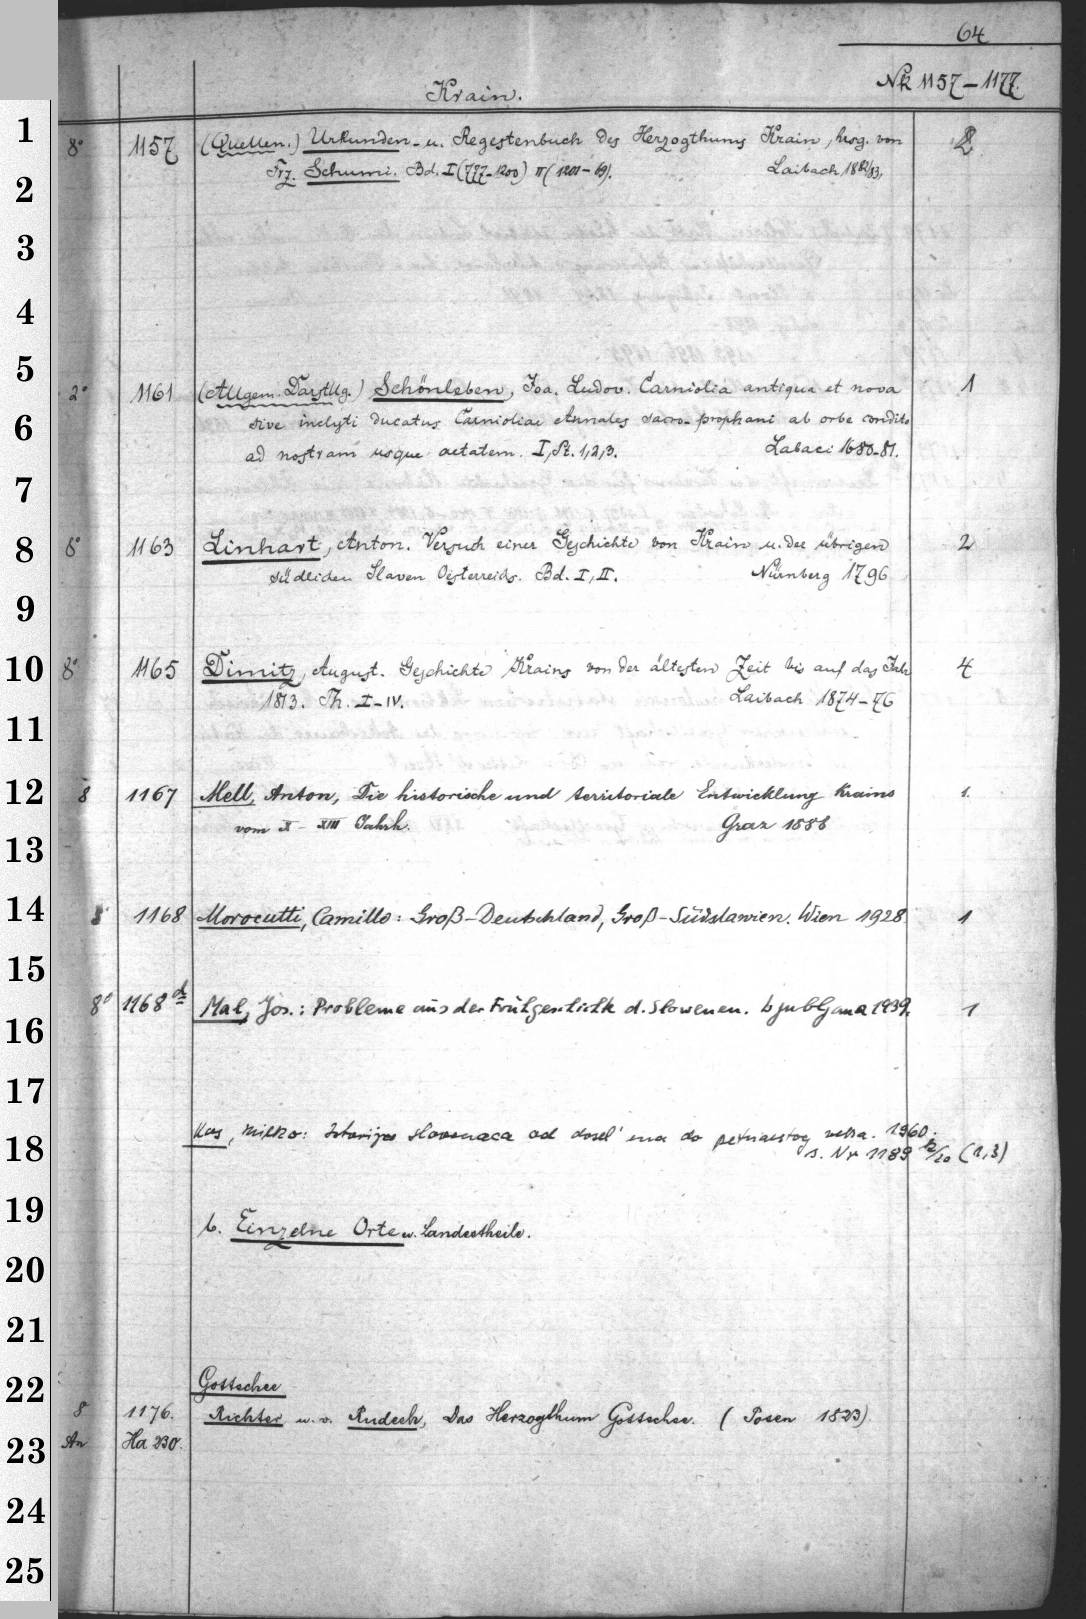 64
Nr 1157-1177.
Krain.
8° 1157 (Quellen.) Urkunden- u. Regestenbuch des Herzogthums Krain, hrsg. von 2
Frz. Schumi. Bd. I (777-1200) II (1201-69). Laibach 1882/83.
2° 1161 (Allgem. Darstllg.) Schönleben, Joa. Ludov. Carniolia antiqua et nova 1
sive inclyti ducatus Carnioliae Annales sacro-prophani ab orbe condito
ad nostram usque aetatem. I, St. 1,2,3. Labaci 1680-81.
8° 1163 Linhart, Anton. Versuch einer Geschichte von Krain u. der übrigen 2
südlichen Slaven Oesterreichs. Bd. I, II. Nürnberg 1796
8° 1165 Dimitz, August. Geschichte Krains von der ältesten Zeit bis auf das Jahr 4
1813. Th. I-IV. Laibach 1874-76
8 1167 Mell, Anton, Die historische und territoriale Entwicklung Krains 1.
vom X - XIII Jahrh. Graz 1888
8° 1168 Morocutti, Camillo: Groß-Deutschland, Groß-Südslawien. Wien 1928 1
8° 1168 d Mal, Jos.: Probleme aus der Frühgeschichte d. Slowenen. Ljubljana 1939. 1
Kos, Milko: Istorija slovenaca od doseljena do petnaestog veka. 1960.
s. Nr 1189 /20 (1,3)
b. Einzelne Orte u. Landestheile.
Gottschee
8 1176. Richter u. v. Rudesh, Das Herzogthum Gottschee. (Posen 1823)
An Ha 230.
1
2
3
4
5
6
7
8
9
10
11
12
13
14
15
16
17
18
19
20
21
22
23
24
25